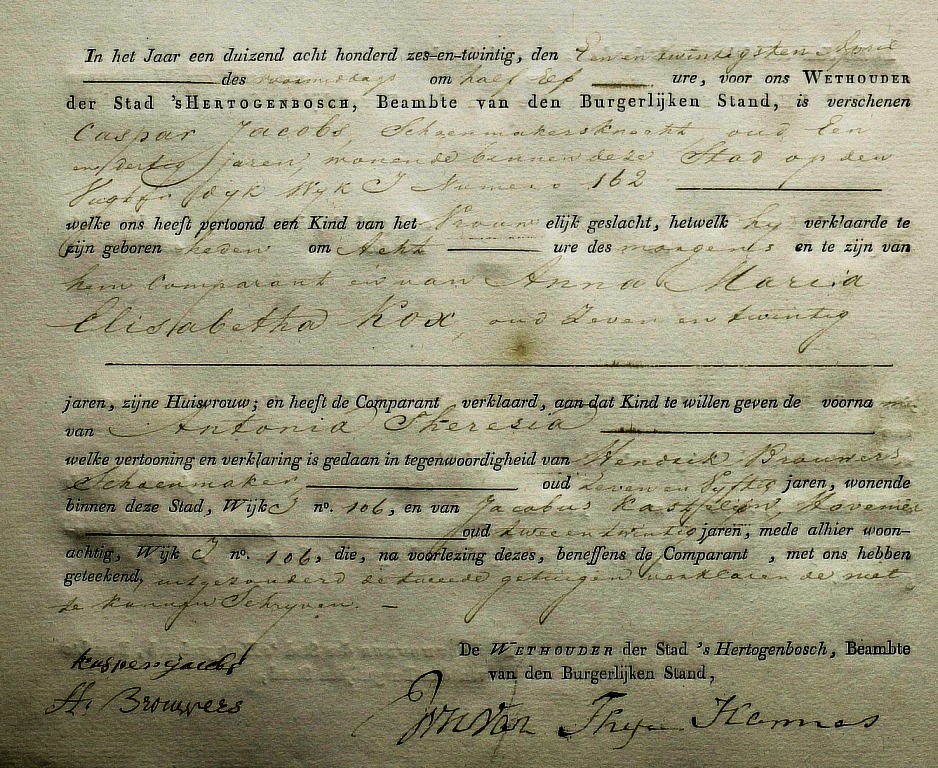 In het Jaar een duizend acht honderd zes-en-twintig, den Een en twintigsten April
des voormiddags om half Elf ure, voor ons WETHOUDER
der Stad 'sHERTOGENBOSCH, Beambte van den Burgerlijken Stand, is verschenen
Caspar Jacobs, Schoenmakersknecht, oud Een
en dertig jaren, wonende binnen deze Stad op den
Vughter Dyk Wyk J Numero 162
welke ons heeft vertoond een Kind van het Vrouw elijk geslacht, hetwelk hy verklaarde te
zijn geboren heden om Acht ure des morgens en te zijn van
hem Comparant en van Anna Maria
Elisabetha Kox, oud Zeven en twintig
jaren, zijne Huisvrouw; en heeft de Comparant verklaard, aan dat Kind te willen geven de voorna men
van Antonia Theresia
welke vertooning en verklaring is gedaan in tegenwoordigheid van Hendrik Brouwers
Schoenmaker oud Zeven en Vyftig jaren, wonende
binnen deze Stad, Wijk J n°. 106, en van Jacobus Kasteleijn, Hovenier
oud twee en twintig jaren, mede alhier woon-
achtig, Wijk J n°. 106, die, na voorlezing dezes, beneffens de Comparant , met ons hebben
geteekend, uitgezonderd de tweede getuigen verklarende niet
te kunnen Schryven. —
De WETHOUDER der Stad 's Hertogenbosch, Beambte
van den Burgerlijken Stand,
kasper jacobs
H. Brouwers
van Thye Hannes